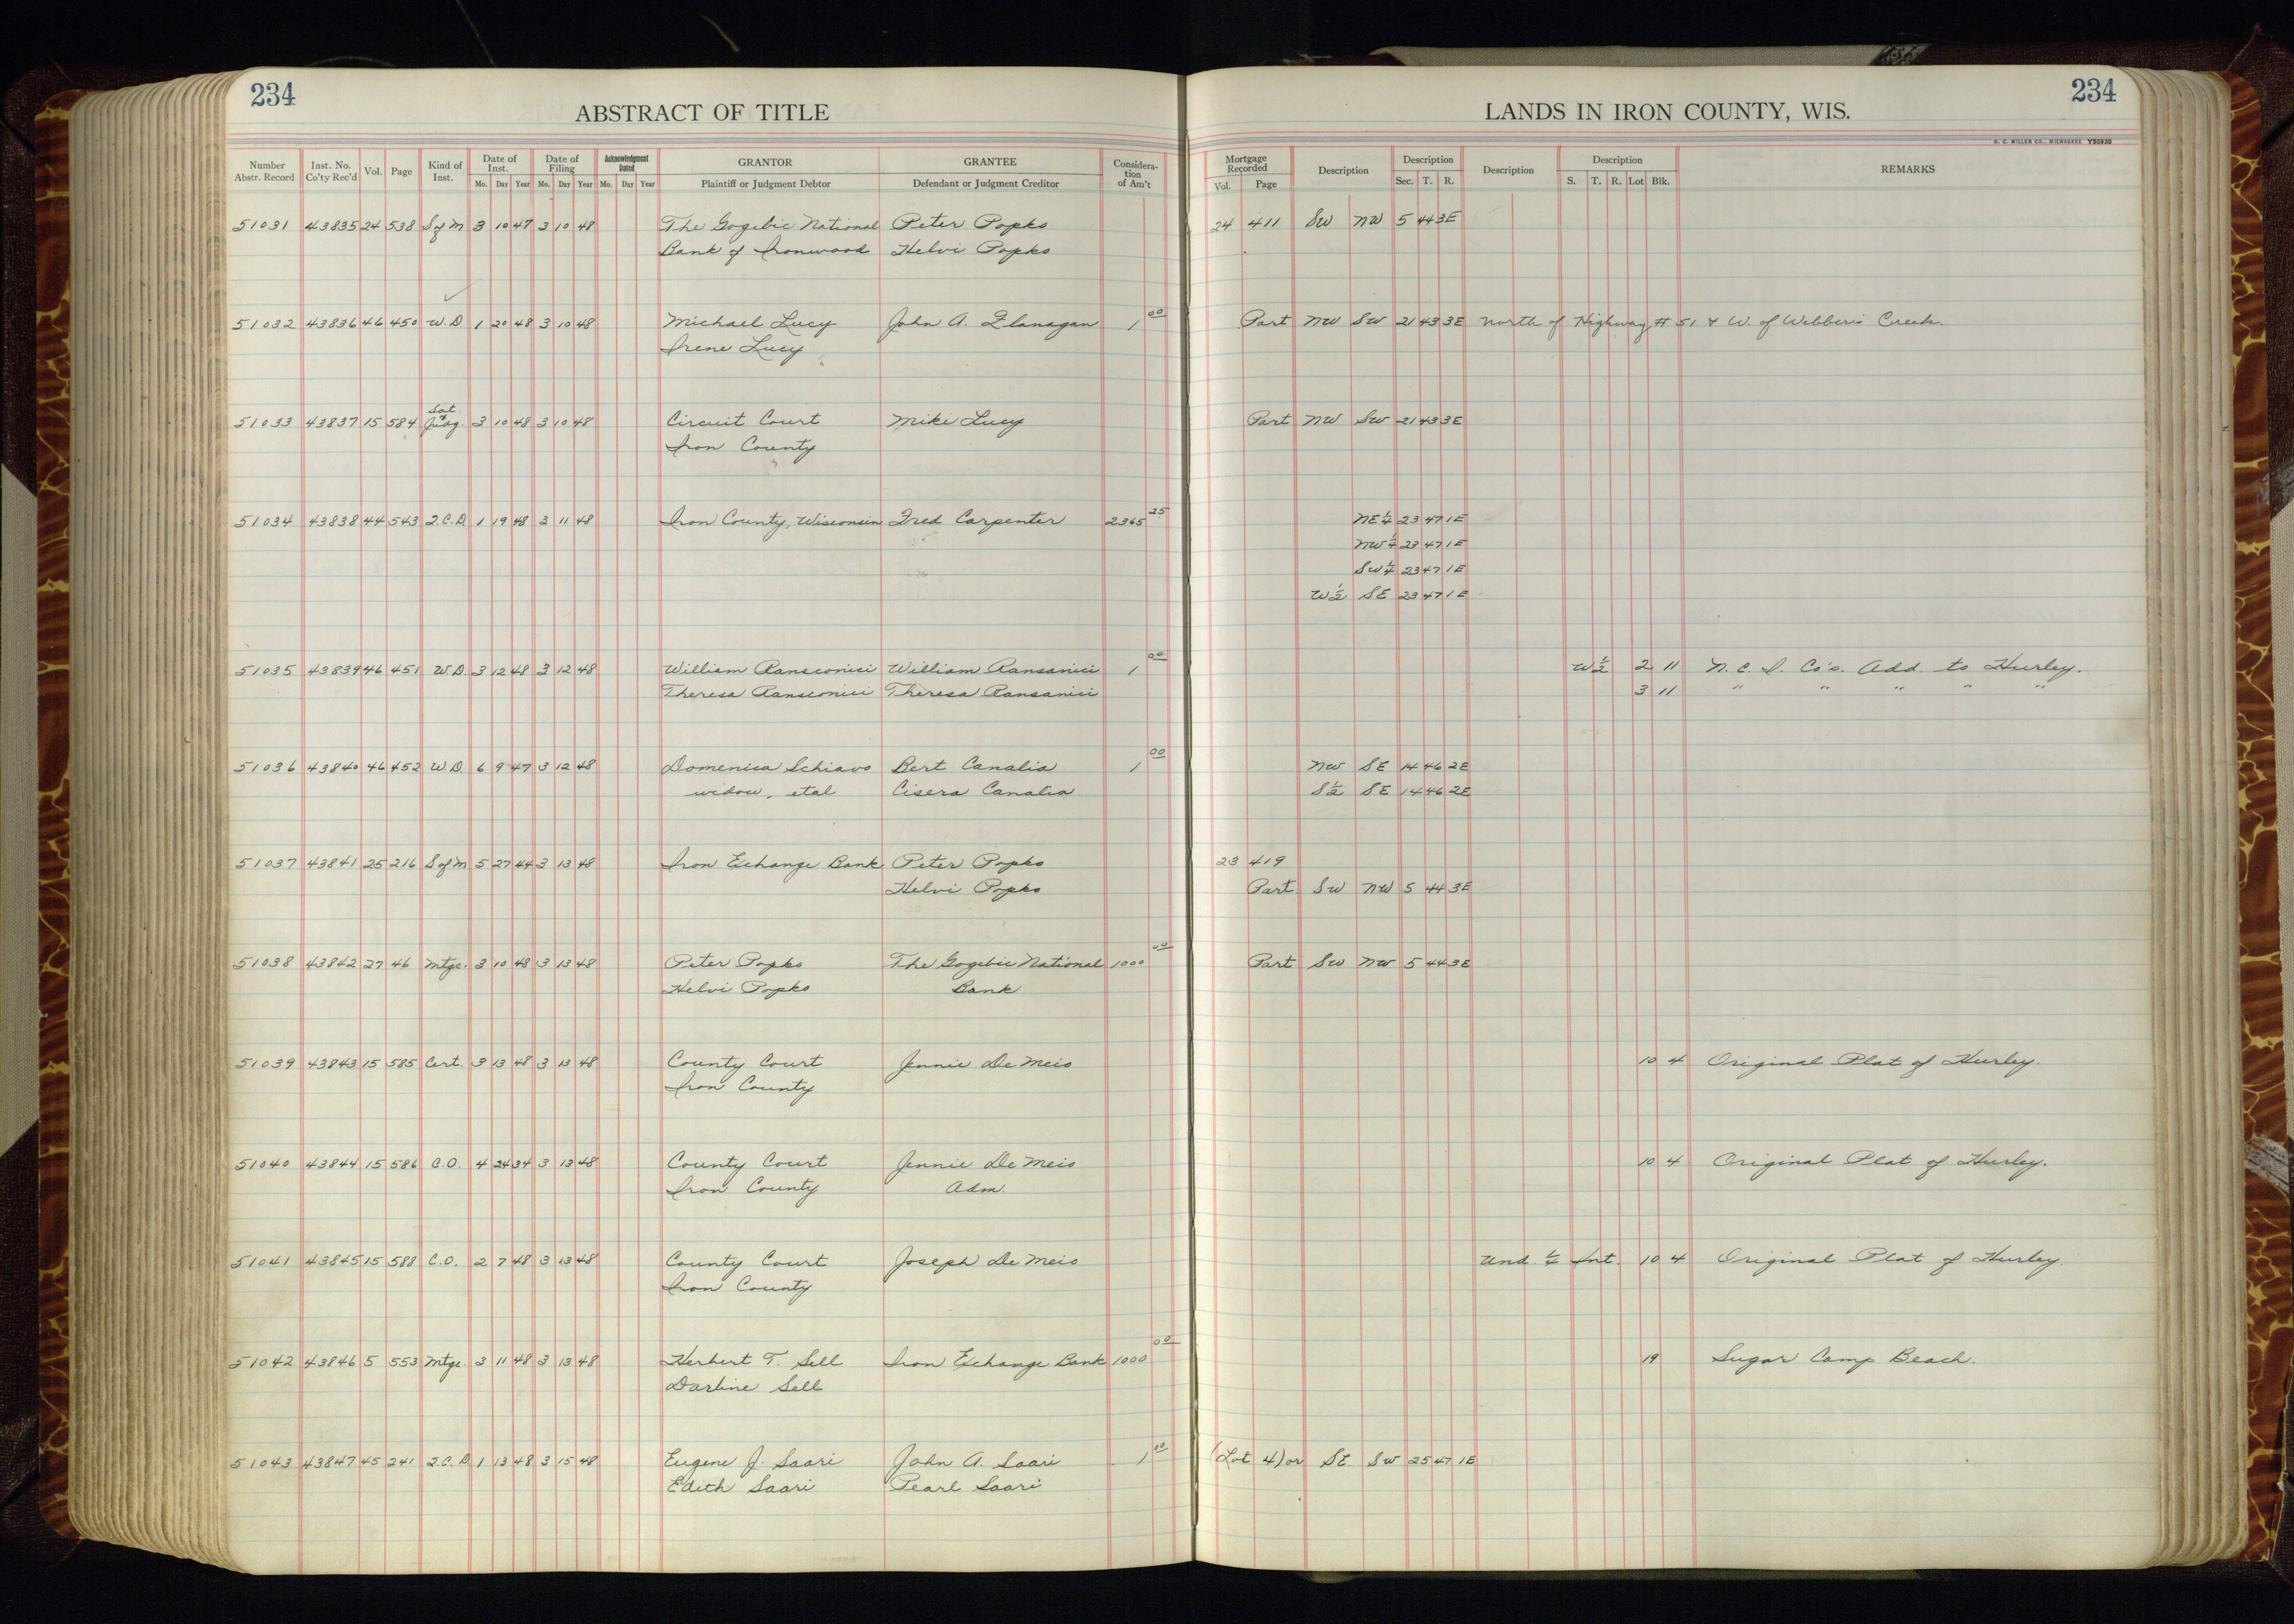 234
ABSTRACT OF TITLE
LANDS IN IRON COUNTY, WIS.
234
H. C. MILLER CO., MILWAUKEE Y50930
Number Abstr. Record | Inst. No. Co'ty Rec'd | Vol. | Page | Kind of Inst. | Date of Inst. Mo. Day Year | Date of Filing Mo. Day Year | Acknowledgment Dated Mo. Day Year | GRANTOR Plaintiff or Judgment Debtor | GRANTEE Defendant or Judgment Creditor | Considera-tion of Am't | Mortgage Recorded Vol. Page | Description | Description Sec. T. R. | Description | Description S. T. R. Lot Blk. | REMARKS
51031 43835 24 538 S of M 3 10 47 3 10 48 The Gogebic National Peter Popko 24 411 SW NW 5 44 3E
Bank of Ironwood Helvi Popko
51032 43836 46 450 W.D. 1 20 48 3 10 48 Michael Lucy John A. Flanagan 1 00 Part NW SW 21 43 3E North of Highway # 51 & W. of Webber's Creek.
Irene Lucy
51033 43837 15 584 Sat. of Judg. 3 10 48 3 10 48 Circuit Court Mike Lucy Part NW SW 21 43 3E
Iron County
51034 43838 44 543 Q.C.D. 1 19 48 3 11 48 Iron County, Wisconsin Fred Carpenter 2365 25 NE 1/4 23 47 1E
NW 1/4 23 47 1E
SW 1/4 23 47 1E
W 1/2 SE 23 47 1E
51035 43839 46 451 W.D. 3 12 48 3 12 48 William Ransconici William Ransanici 1 00 W 1/2 2 11 N. C. I. Co's. Add. to Hurley.
Theresa Ransconici Theresa Ransanici 3 11 " " " " "
51036 43840 46 452 W.D. 6 9 47 3 12 48 Domenica Schiavo Bert Canalia 1 00 NW SE 14 46 2E
widow, etal Cisera Canalia S 1/2 SE 14 46 2E
51037 43841 25 216 S of M 5 27 44 3 13 48 Iron Exchange Bank Peter Popko 23 419
Helvi Popko Part SW NW 5 44 3E
51038 43842 27 46 Mtge. 3 10 48 3 13 48 Peter Popko The Gogebic National 1000 00 Part SW NW 5 44 3E
Helvi Popko Bank
51039 43843 15 585 Cert. 3 13 48 3 13 48 County Court Jennie De Meis 10 4 Original Plat of Hurley.
Iron County
51040 43844 15 586 C.O. 4 24 34 3 13 48 County Court Jennie De Meis 10 4 Original Plat of Hurley.
Iron County Adm.
51041 43845 15 588 C.O. 2 7 48 3 13 48 County Court Joseph De Meis Und. 1/4 Int. 10 4 Original Plat of Hurley.
Iron County
51042 43846 5 553 Mtge. 3 11 48 3 13 48 Herbert T. Sell Iron Exchange Bank 1000 00 19 Sugar Camp Beach.
Darline Sell
51043 43847 45 241 Q.C.D. 1 13 48 3 15 48 Eugene J. Saari John A. Saari 1 00 (Lot 4) or SE SW 25 47 1E
Edith Saari Pearl Saari